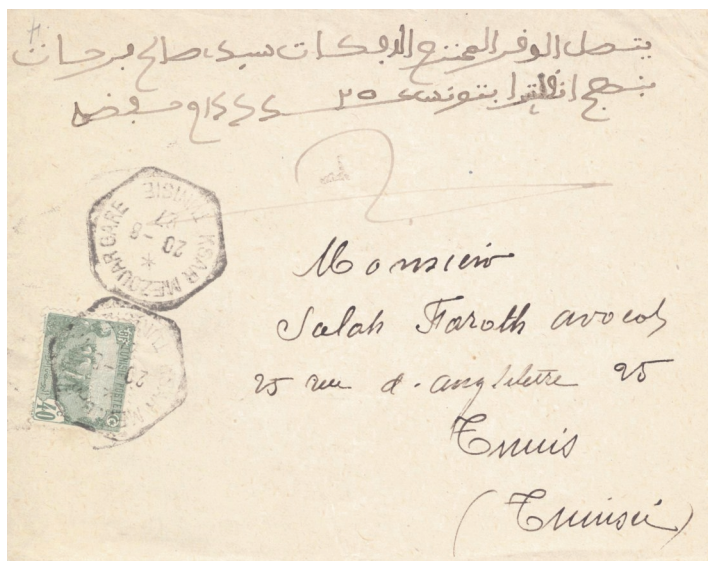 يتصل الوفر الممتنح الابكات سيدي صالح فرحات
بنهج انقلترا بتونس ٢٥
T
KSAR MEZOUAR GARE TUNISIE
20 - 8
27
Monsieur
Salah Faroth avocat
25 rue d'angleterre 25
Tunis
(Tunisie)
40